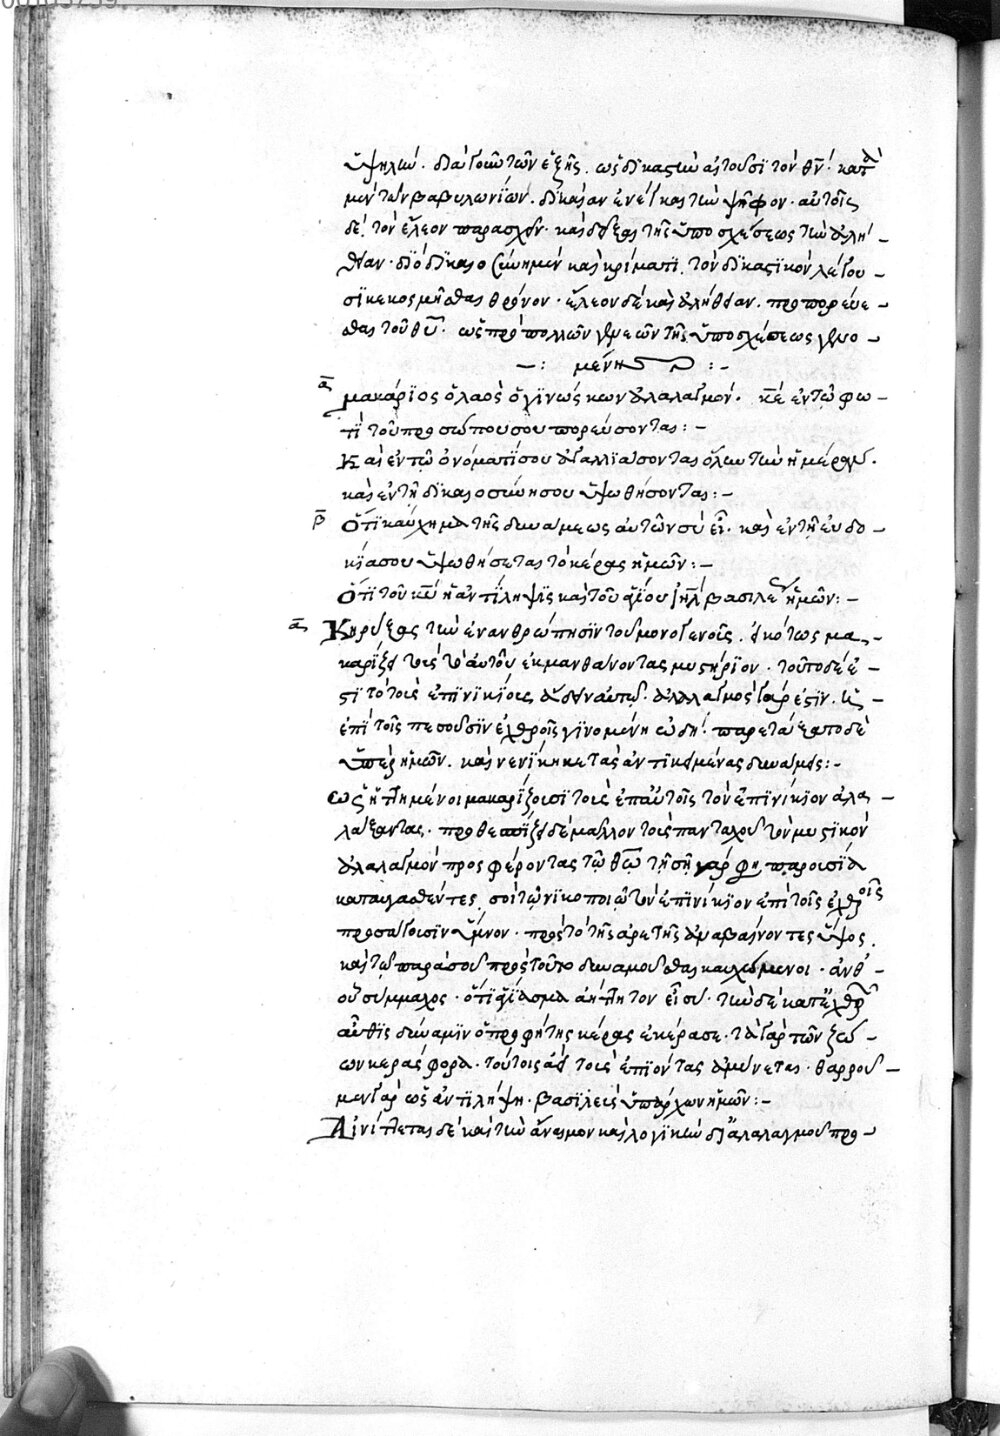 ὑψηλῶν. διὰ γοῦν τῶν ἑξῆς. ὡς δικαστὴν αἰτοῦσι τὸν θν̄. κατὰ
μὲν τῶν βαβυλωνίων. δικαίαν ἐνεγκαι τὴν ψῆφον. αὐτοῖς
δὲ τὸν ἔλεον παρασχεῖν. καὶ δεῖξαι τῆς ὑποσχέσεως τὴν ἀλή-
θειαν. διὸ δικαιοσύνη μὲν καὶ κρίματι. τὸν δικαστικὸν λέγου-
σι κεκοσμῆσθαι θρόνον. ἔλεον δὲ καὶ ἀλήθειαν. προπορεύε-
σθαι τοῦ θῡ. ὡς πρὸ πολλῶν τῆς ὑποσχέσεως γενο-
μένης :-
ᾱ μακάριος ὁ λαὸς ὁ γινώσκων ἀλαλαγμόν. κε̄ ἐν τῷ φω-
τὶ τοῦ προσώπου σου πορεύσονται:-
Καὶ ἐν τῷ ὀνόματί σου ἀγαλλιάσονται ὅλην τὴν ἡμέραν.
καὶ ἐν τῇ δικαιοσύνη σου ὑψωθήσονται:-
β̄ Ὅτι καύχημα τῆς δυνάμεως αὐτῶν σὺ εἶ. καὶ ἐν τῇ εὐδο-
κία σου ὑψωθήσεται τὸ κέρας ἡμῶν:-
Ὅτι τοῦ κῡ ἡ ἀντίληψις καὶ τοῦ ἁγίου ιη̄λ βασιλέως ἡμῶν:-
ᾱ Κηρύξας τὴν ἐνανθρώπησιν τοῦ μονογενοῦς. εἰκότως μα-
καρίζει τοὺς τὸ αὐτοῦ ἐκμανθάνοντας μυστήριον. τοῦτο δέ ἐ-
στι τὸ τοὺς ἐπινικίους ᾄδειν αὐτῷ. ἀλαλαγμὸς γάρ ἐστιν. ἡ
ἐπὶ τοῖς πεσοῦσιν ἐχθροῖς γινομένη ᾠδή. παρετάξατο δὲ
ὑπὲρ ἡμῶν. καὶ νενίκηκε τὰς ἀντικειμένας δυνάμεις:-
μακαρίζουσι τοὺς ἐπ' αὐτοῖς τὸν ἐπινίκιον ἀλα-
λάξαντας. δὲ μᾶλλον τοὺς πανταχοῦ τὸν μυστικὸν
ἀλαλαγμὸν προσφέροντας τῷ θῶ τῇ σῇ γάρ φη παρουσία
καταυγασθέντες. σοὶ τῷ νικοποιῷ τὸν ἐπινίκιον ἐπὶ τοῖς ἐχθροῖς
προσάγουσιν ὕμνον. πρὸς τὸ τῆς ἀρετῆς ἀναβαίνοντες ὕψος.
καὶ τῷ παρὰ σοῦ πρὸς τοῦτο δυναμοῦσθαι καυχώμενοι. ἀνθ'
οὗ σύμμαχος. ὅτι ἀήττητον εἶ σύ. τὴν δὲ κατ' ἐχθρῶν
αὖθις δύναμιν ὁ προφήτης κέρας ἐκέρασε. τὰ γὰρ τῶν ζώ-
ων κερασφόρα. τούτοις ἀεὶ τοὺς ἐπιόντας ἀμύνεται. θαρροῦ-
μεν γὰρ ὡς ἀντιλήψη. βασιλεὺς ὑπάρχων ἡμῶν:-
Αἰνίττεται δὲ καὶ τὴν ἄναιμον καὶ λογικὴν δι' ἀλαλαγμοῦ προ-